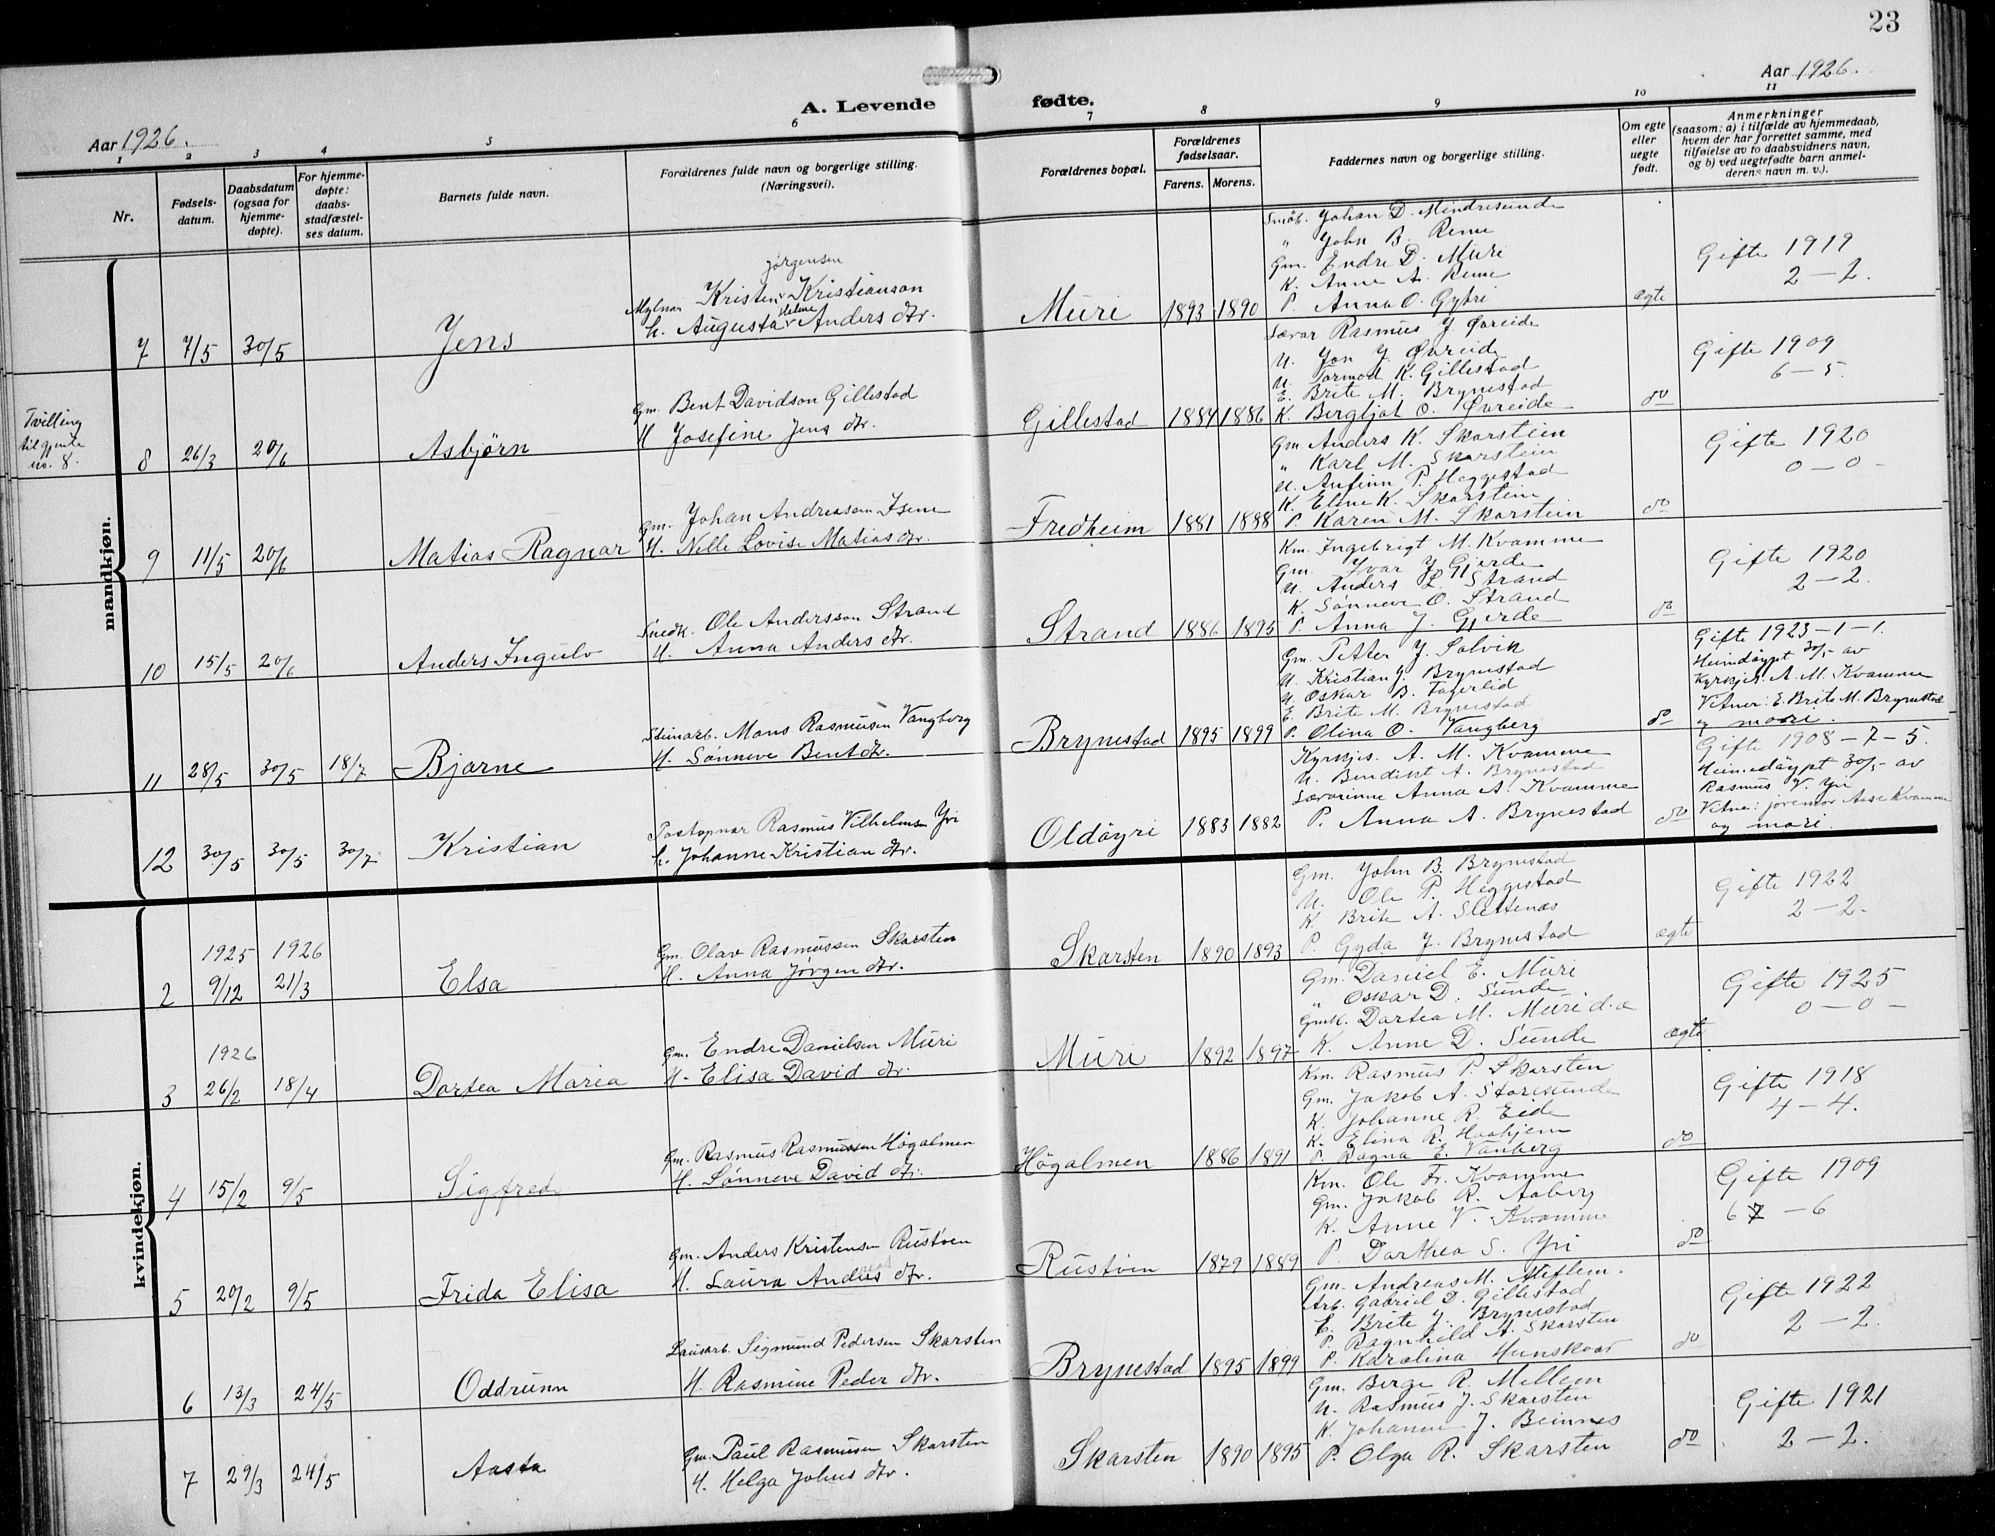 23
Aar 1926.
Aar 1926.
A. Levende fødte.
1 2 3 4 5 6 7 8 9 10 11
Nr.
Fødsels-
datum.
Daabsdatum
(ogsaa for
hjemme-
døpte).
For hjemme-
døpte:
daabs-
stadfæstel-
ses datum.
Barnets fulde navn.
Forældrenes fulde navn og borgerlige stilling.
(Næringsvei).
Forældrenes bopæl.
Forældrenes
fødselsaar.
Farens. Morens.
Faddernes navn og borgerlige stilling.
Om egte
eller
uegte
født.
Anmerkninger
(saasom: a) i tilfælde av hjemmedaab,
hvem der har forrettet samme, med
tilføielse av to daabsvidners navn,
og b) ved uegtefødte barn anmel-
derens navn m. v.).
mandkjøn.
7 7/5 30/5
Jens
Jørgensen
Kristen Kristianson
h. Augusta Anders dtr.
Muri 1893 1890
Småb. Johan D. Mindresunde
" John B. Reme
Gm. Endre D. Muri
K. Anne A. Reme
P. Anna O. Gytri
ægte
Gifte 1919
2-2.
Tvilling
til gjente
no. 8.
8 26/3 20/6
Asbjørn
Gm. Bent Davidson Gillestad
H Josefine Jens dtr.
Gillestad 1884 1886
Lærar Rasmus J. Øvreide
U. Jon J. Øvreide
U. Tormod K. Gillestad
E. Brite M. Brynestad
K. Bergljot O. Øvreide
do
Gifte 1909
6-5.
9 11/5 20/6
Matias Ragnar
Gm. Johan Andreasson Isene
H. Nelle Lovise Matias dtr.
Fredheim 1881 1888
Gm Anders K. Skarstein
" Karl M. Skarstein
U. Anfinn P. Heggestad
K. Eline K. Skarstein
P. Karen M. Skarstein
do
Gifte 1920
0-0-
10 15/5 20/6
Anders Ingulv
Snedk. Ole Andersson Strand
H. Anna Anders dtr.
Strand 1886 1895
Km. Ingebrigt M. Kvamme
Gm. Ivar J Gjerde
U. Anders L Strand
K. Sønneve O. Strand
P. Anna J. Gjerde
do
Gifte 1920
2-2.
11 28/5 30/5 18/7
Bjarne
Steinarb. Mons Rasmusen Vangberg
H. Sønneve Bent dtr.
Brynestad 1895 1899
Gm. Petter J. Solvik
U. Kristian J. Brynestad
U Oskar B. Fagerlid
E. Brite M. Brynestad
P. Olina O. Vangberg
do
Gifte 1923-1-1.
Heimdöypt 30/5 av
Kyrkjes. A. M. Kvamme
Vitner: E. Brite M. Brynestad
og mori.
12 30/5 30/5 30/7
Kristian
Postopnar Rasmus Vilhelmsen Yri
h. Johanne Kristian dtr.
Oldöyri 1883 1882
Kyrkjes. A. M. Kvamme
U. Bendikt A. Brynestad
Lærarinne Anna A. Kvamme
P. Anna A. Brynestad
do
Gifte 1908-7-5.
Heimedöypt 30/5 av
Rasmus V. Yri
Vitne: jormor Ase Kvamme
og mori.
kvindekjøn.
1925 1926
2 9/12 21/3
Elsa
Gm. Olav Rasmussen Skarsten
H. Anna Jørgen dtr.
Skarsten 1890 1893
Gm. John B. Brynestad
U. Ole P. Heggestad
K. Brite A. Slettenæs
P. Gyda J. Brynestad
ægte
Gifte 1922
2-2.
1926
3 26/2 18/4
Dortea Maria
Gm. Endre Danielsen Muri
H. Elisa David dtr.
Muri 1892 1897
Gm. Daniel E. Muri
" Oskar D. Sunde
Gmk. Dortea M. Muri d.a
K. Anne D. Sunde
ægte
Gifte 1925
0-0-
4 15/2 9/5
Sigfred
Gm. Rasmus Rasmussen Högalmen
H. Sønneve David dtr.
Högalmen 1886 1891
Km. Rasmus P. Skarsten
Gm. Jakob A. Storesunde
K. Johanne R. Eide
K. Elina R. Haahjem
P. Ragna E. Vanberg
do
Gifte 1918
4-4.
5 20/2 9/5
Frida Elisa
Gm. Anders Kristensen Rustöen
H. Laura Andres dtr.
Rustöen 1879 1889
Km. Ole Fr. Kvamme
Gm. Jakob R. Aaberg
K. Anne V. Kvamme
P. Darthea S. Yri
do
Gifte 1909
6 7-6
6 13/3 24/5
Oddrunn
Lausarb. Sigmund Pedersen Skarsten
H. Rasmine Peder dtr.
Brynestad 1895 1899
Gm. Andreas M. Meflem.
Arb. Gabriel D. Gillestad
E. Brite J. Brynestad
P. Ragnhild A. Skarsten
P. Karolina Hunskoor
do
Gifte 1922
2-2.
7 29/3 24/5
Aasta
Gm. Paul Rasmusen Skarsten
H. Helga Johns dtr.
Skarsten 1890 1895
Gm. Berge R. Mellem
U. Rasmus J. Skarsten
K. Johanne J. Beinnes
P. Olga R. Skarsten
do
Gifte 1921
2-2.